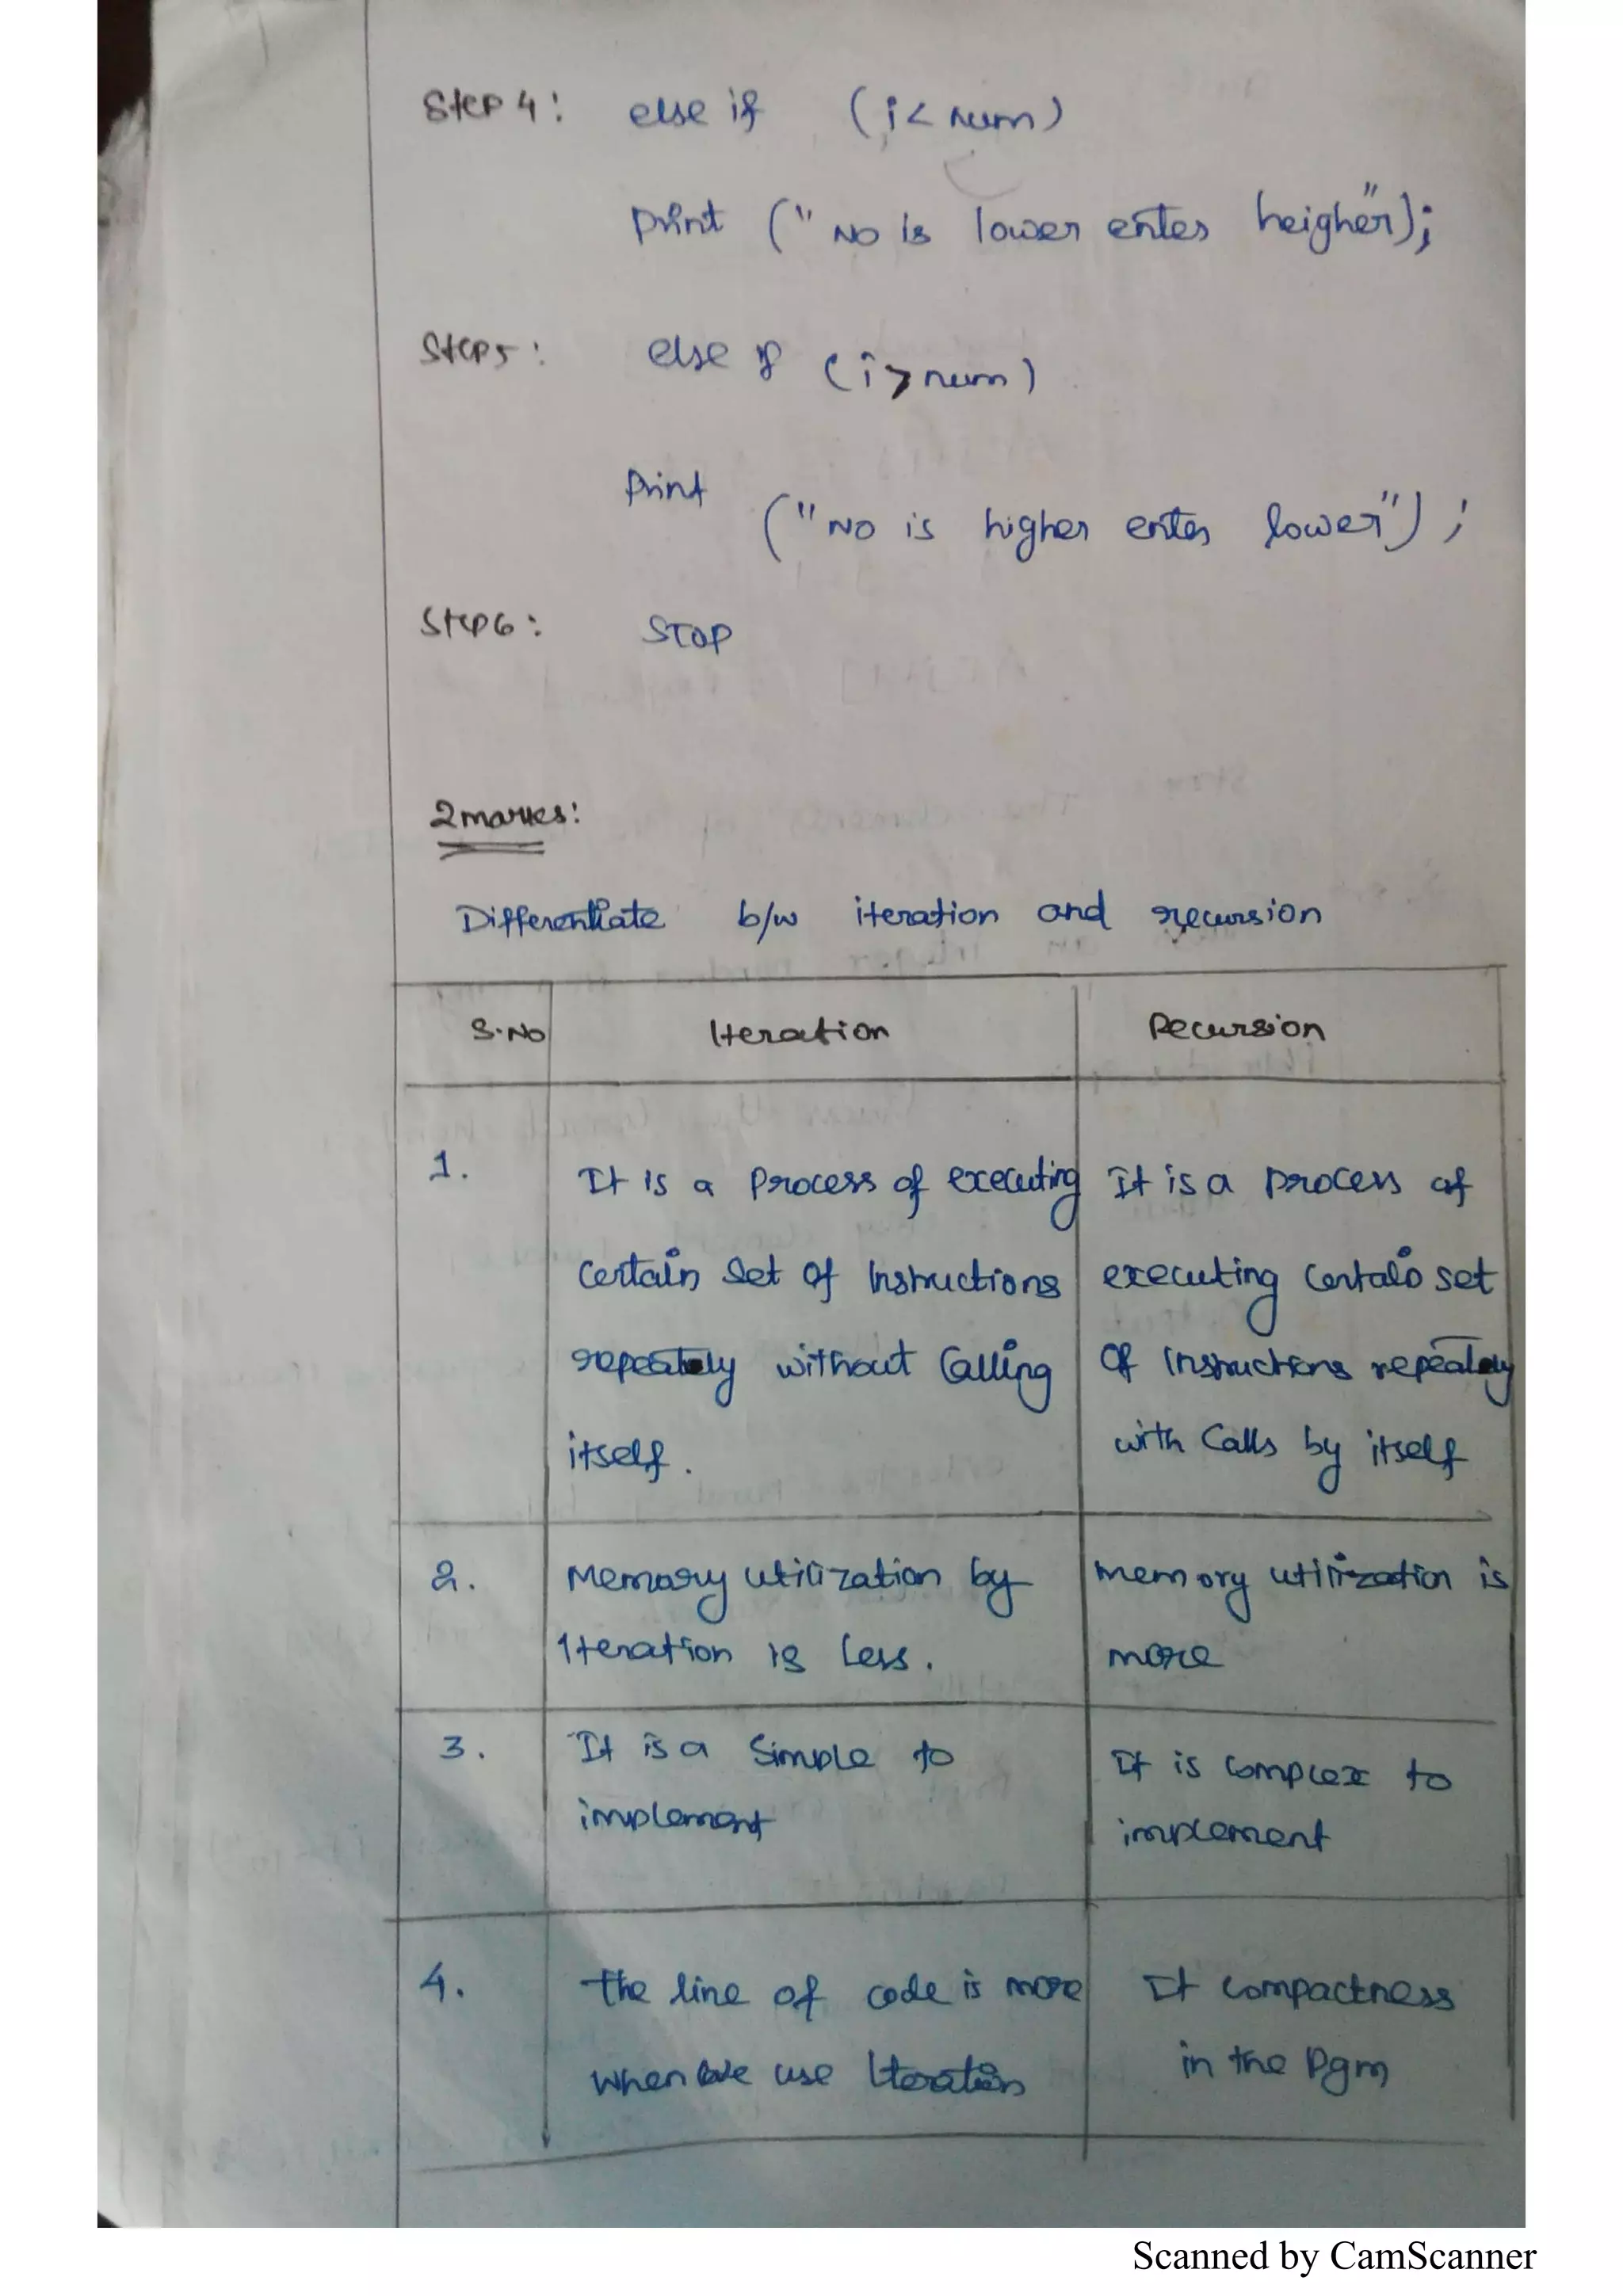 Step 4: else if (i < num)
Print ("No is lower enter heigher");
Step 5: else if (i > num)
Print
("No is higher enter lower");
Step 6: STOP
2 marks:
Differentiate b/w iteration and recursion
S.No Iteration Recursion
1. It is a Process of executing It is a process of
certain set of Instructions executing certain set
repeately without Calling Of Instructions repeately
itself. with Calls by itself
2. Memory utilization by Memory utilization is
Iteration is Less. more
3. It is a Simple to It is complex to
implement implement
4. The line of code is more It compactness
when we use Iteration in the Pgm
Scanned by CamScanner